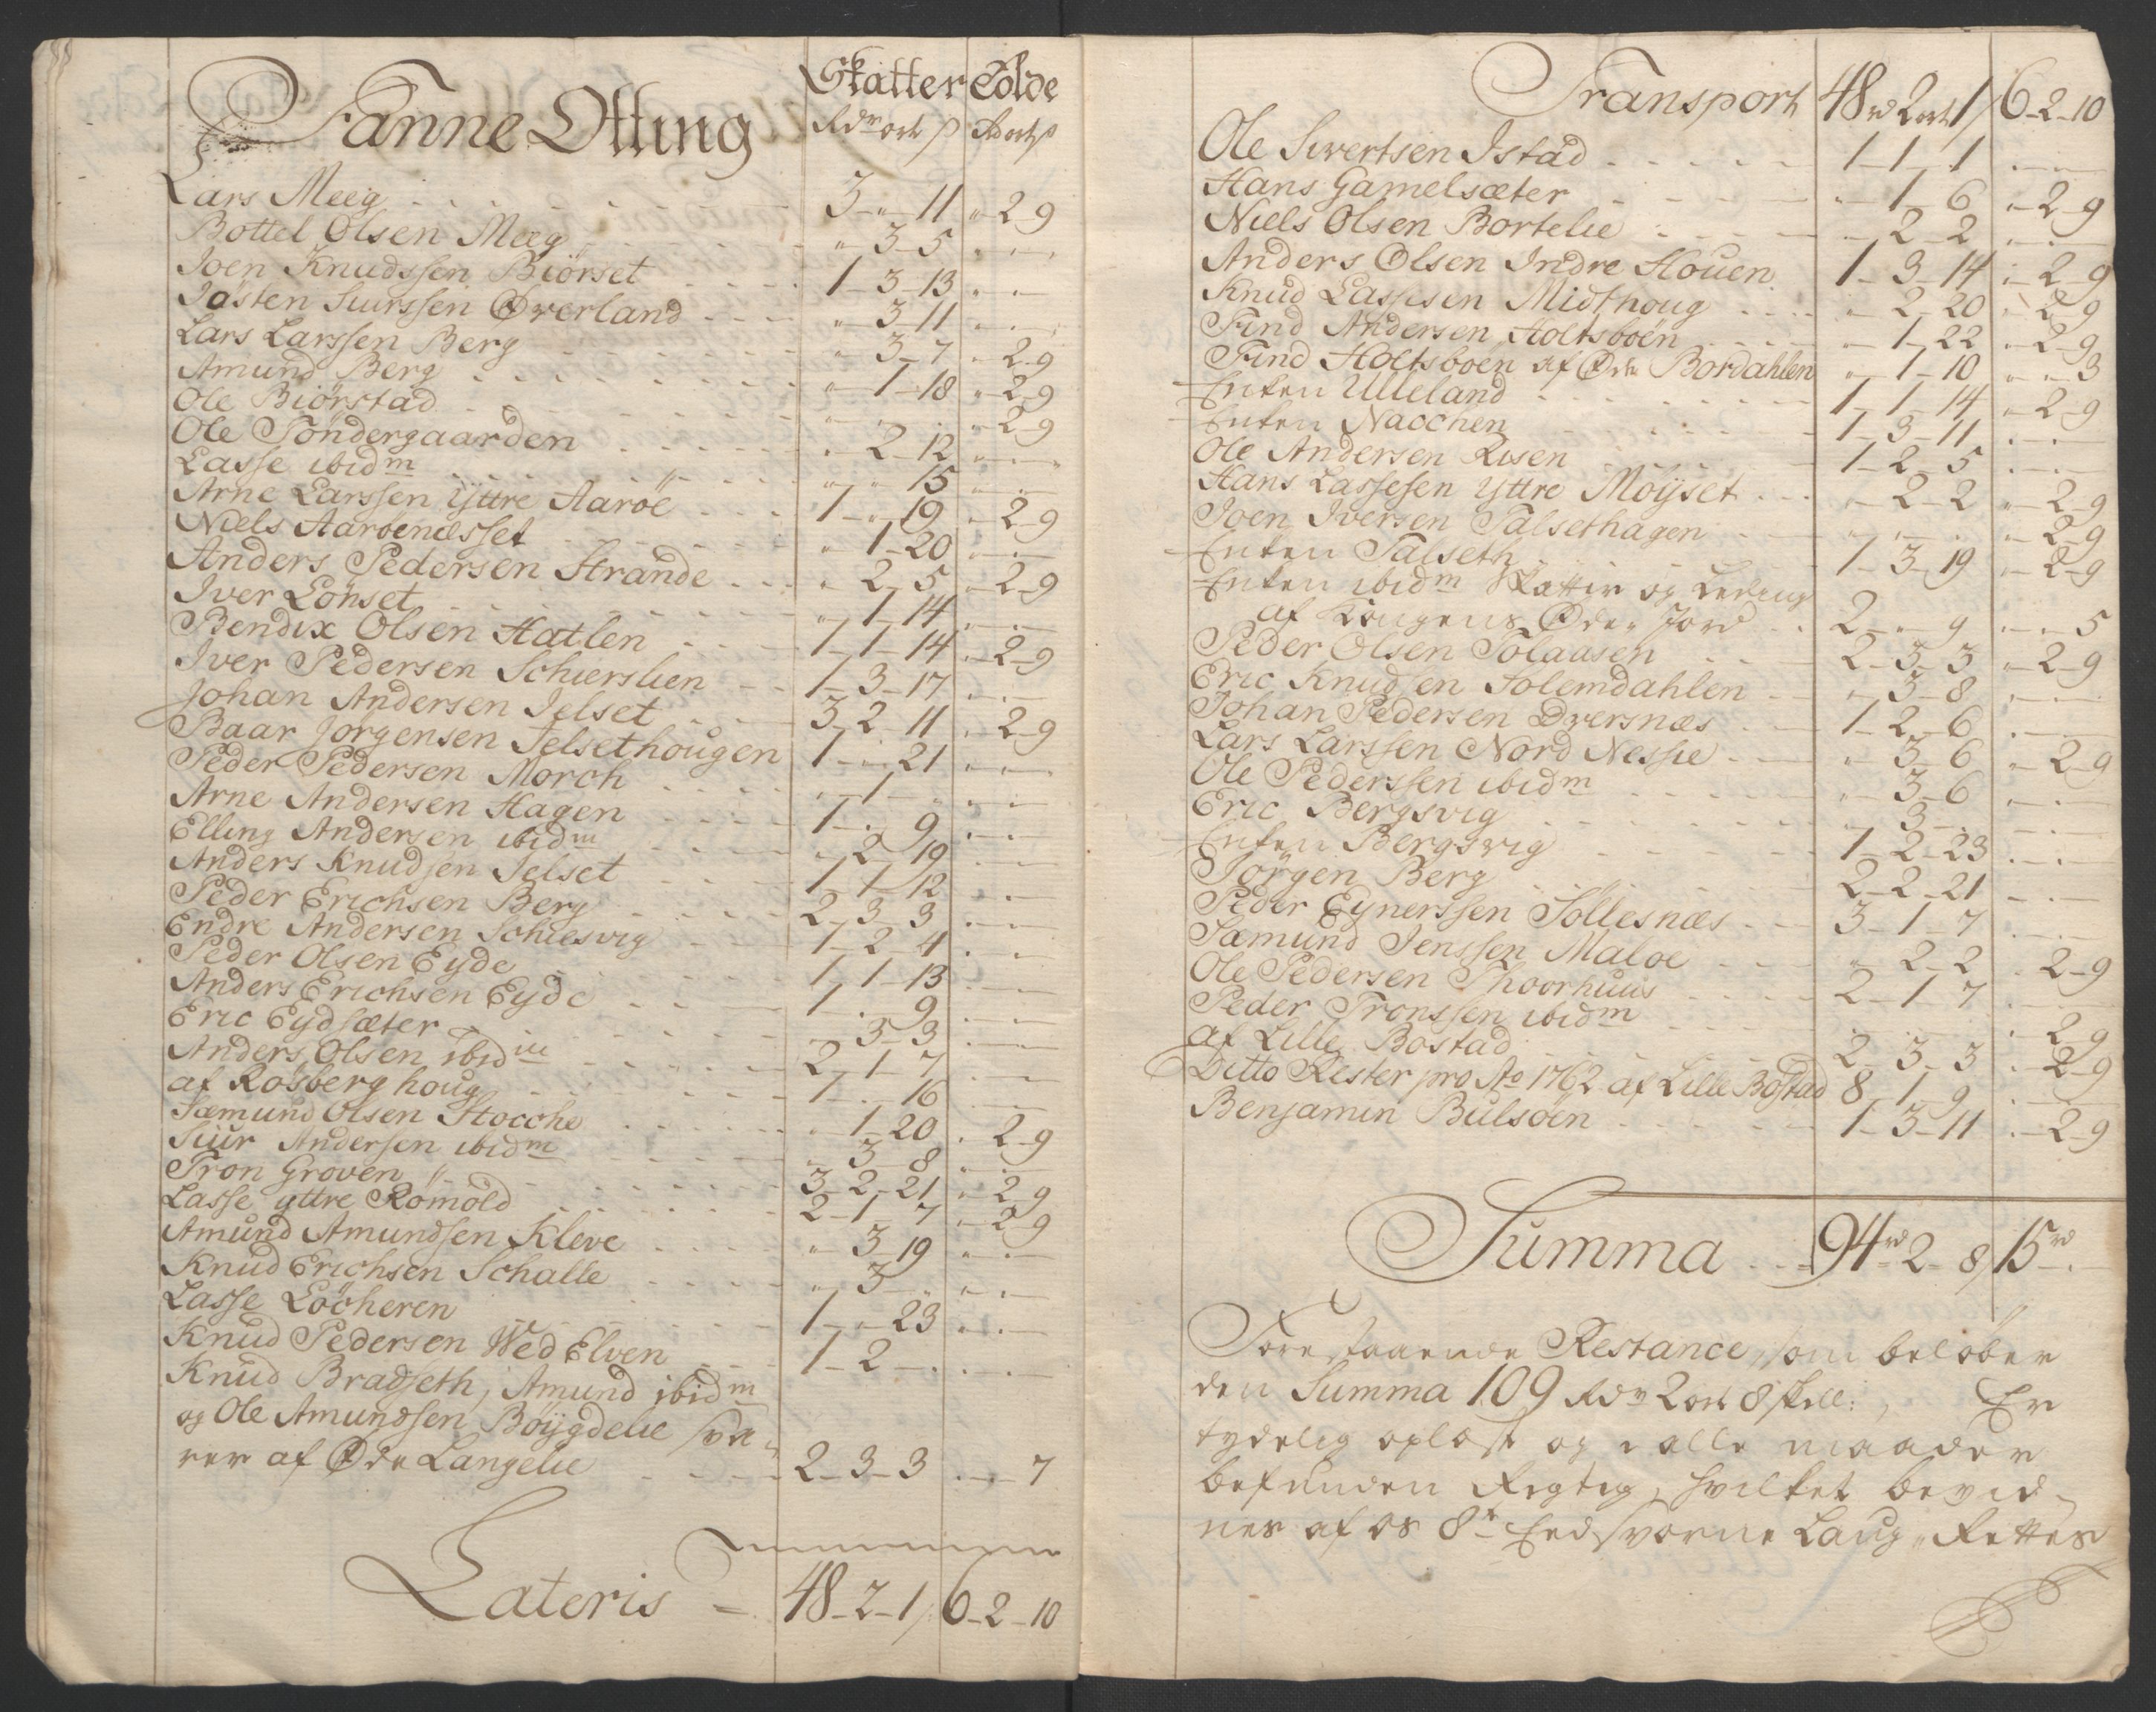 Fanne Otting Skatter Tolde
Rdr ort ß Rd ort ß
Lars Meeg 3 - " - 11 " 2 - 9
Bottel Olsen Meeg " 3 - 5 " - " -
Joen Knudssen Biörset 1 - 3 - 13 " - " -
Josten Siurssen Øverland " - 3 - 11 " - " -
Lars Larssen Berg " 3 - 7 " - 2 - 9
Amund Berg " - 1 - 18 " - 2 - 9
Ole Biörstad " - " - " " - 2 - 9
Ole Töndergaarden " - 2 - 12 " - " -
Lasse ibidm " - " - 15 " - " -
Arne Larssen Yttre Aaröe 1 - " - 19 " - 2 - 9
Niels Aaroenæsset " 1 - 20 " - " -
Anders Pedersen Strande " 2 - 5 " - 2 - 9
Iver Lönset " - 1 - 14 " - " -
Bendix Olsen Hatlen 1 - 1 - 14 " - 2 - 9
Iver Pedersen Schierslien 1 - 3 - 17 " - " -
Johan Andersen Jelset 3 - 2 - 11 " - 2 - 9
Baar Jörgensen Jelsethougen 1 - " - 21 " - " -
Peder Pedersen Morch " - 1 - " " - " -
Arne Andersen Hagen 1 - " - 9 " - " -
Elling Andersen ibidm " - 2 - 19 " - " -
Anders Knudsen Jelset 1 - 1 - 12 " - " -
Peder Erichsen Berg 2 - 3 - 3 " - " -
Endre Andersen Schiesvig 1 - 2 - 4 " - " -
Peder Olsen Eyde 1 - 1 - 13 " - " -
Anders Erichsen Eyde 1 - " - 9 " - " -
Eric Eydsæter " - 3 - 3 " - " -
Anders Olsen ibidm 2 - 1 - 7 " - " -
af Rösberg houg 1 - " - 16 " - " -
Sæmund Olsen Stocche " - 1 - 20 " 2 - 9
Siur Andersen ibidm " - 3 - 8 " - " -
Tron Groven 3 - 2 - 21 " - 2 - 9
Lasse yttre Römold 2 - 1 - 7 " - 2 - 9
Amund Amundsen Kleve " - 3 - 19 " - " -
Knud Erichsen Schalle " - 3 - " " - " -
Lasse Löcheren 1 - " - 23 " - " -
Knud Pedersen Wed Elven 1 - 2 - " " - " -
Knud Bradseth, Amund ibidm
og Ole Amundsen Böygdelie sva-
rer af Øde Langelie 2 - 3 - 3 " - " - 7
Lateris 48 - 2 - 1 6 - 2 - 10
Transport 48 rd 2 ort 1 6 - 2 - 10
Ole Sivertsen Istad 1 - 1 - 1 " - " -
Hans Gamelsæter " - 1 - 6 " - 2 - 9
Niels Olsen Bortelie " - 2 - 2 " - " -
Anders Olsen Indre Houen 1 - 3 - 14 " - 2 - 9
Knud Lassesen Midthoug " - 2 - 20 " - 2 - 9
Find Andersen Holtsboen " - 1 - 22 " - 2 - 9
Find Holtsboen af Øde Bordahlen " - 1 - 10 " - " - 3
Enken Ulleland 1 - 1 - 14 " - 2 - 9
Enken Nacchen 1 - 3 - 11 " - " -
Ole Andersen Risen 1 - 2 - 5 " - " -
Hans Lassesen Yttre Möyset " - 2 - 2 " - 2 - 9
Joen Iversen Talsethagen " - " - " " - 2 - 9
Enken Talseth 1 - 3 - 19 " - 2 - 9
Enken ibidm Skatter og Leding
af Kongens Øde Jord 2 - " - 9 " - " - 5
Peder Olsen Solaasen 2 - 3 - 3 " - 2 - 9
Eric Knudsen Solemdahlen " - 3 - 8 " - " -
Johan Pedersen Dversnæs 1 - 2 - 6 " - " -
Lars Larssen Nord Nessie " - 3 - 6 " - 2 - 9
Ole Pederssen ibidm " - 3 - 6 " - " -
Eric Bergsvig " - 3 - " " - " -
Enken Bergsvig 1 - 2 - 23 " - " -
Jörgen Berg 2 - 2 - 21 " - " -
Peder Eynerssen Sollesnæs 3 - 1 - 7 " - " -
Sæmund Jenssen Maloe " - 2 - 2 " 2 - 9
Ole Pedersen Thoorhuus 2 - 1 - 7 " - " -
Peder Tronssen ibidm " 2 - 9
af Lille Bostad 2 - 3 - 3 " - 2 - 9
Ditto Rester pro Ao 1762 af Lille Bostad 8 - 1 - 9 " - " -
Benjamin Bulsöen 1 - 3 - 11 " - 2 - 9
Summa 94 rd 2 - 8 15 rd
Forestaaende Restance, som beløber
den Summa 109 Rdr 2 ort 8 skill:, Er
tydelig oplæst og i alle maader
befunden Rigtig, hvilket bevid-
nes af os 8te Eedsvorne Laug-Rettes